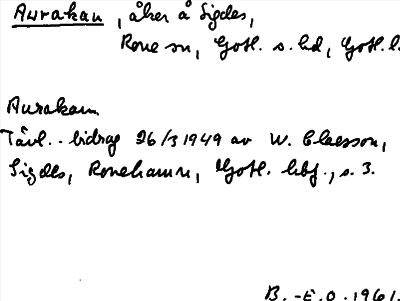 Aurakau, åker å Sigdes,
Rone sn, Gotl. s. hd, Gotl. l.
Aurakau
Tävl.. bidrag 26/3 1949 av W. Claesson,
Sigdes, Ronehamn, Gotl. hbf., s. 3.
B.-E.O. 1961.